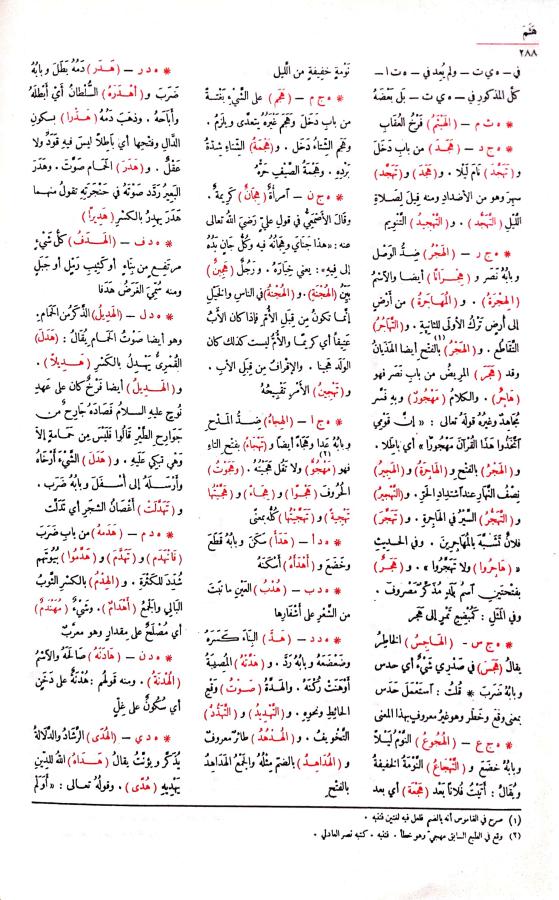 هَثَمَ
٢٨٨
في ــ ه ي ت ــ ولم يُعد في ــ ه ت ا ــ
كلَّ المذكور في ــ ه ي ت ــ بل بَعْضَهُ
* ه ث م ــ (الهَيْثَمُ) فَرْخُ العُقَابِ
* ه ج د ــ (هَجَدَ) من بابِ دَخَلَ
و (تَهَجَّدَ) نامَ لَيْلًا . و (هَجَدَ) و (تَهَجَّدَ)
سهِرَ وهو من الأضدادِ ومنه قيلَ لصلاةِ
اللَّيلِ (التَّهَجُّدُ) . و (التَّهْجِيدُ) التَّنويم
* ه ج ر ــ (الهَجْرُ) ضِدُّ الوَصْلِ
وبابُهُ نَصَرَ و (هِجْرَانًا) أيضًا والاسْمُ
(الهِجْرَةُ) . و (المُهَاجَرَةُ) من أرْضٍ
إلى أرضٍ تَرْكُ الأُولَى للثانيةِ . و (التَّهَاجُرُ)
التَّقَاطُع . و (الهَجْرُ) (١) بالفَتْحِ أيضًا الهَذَيانُ
وقد (هَجَرَ) المَريضُ من بابِ نَصَر فهو
(هَاجِرٌ) . والكلامُ (مَهْجُورٌ) وبه فَسَّر
مُجاهدٌ وغيرُهُ قولَهُ تعالى : « إنَّ قَوْمِي
اتَّخَذُوا هَذَا القُرْآنَ مَهْجُورًا » أي باطِلًا .
و (الهَجْرُ) بالفَتْحِ و (الهَاجِرَةُ) و (الهَجِيرُ)
نِصْفُ النَّهارِ عندَ اشْتِدَادِ الحَرِّ . و (التَّهْجِيرُ)
و (التَّهَجُّرُ) السَّيْرُ في الهاجِرةِ . و (تَهَجَّرَ)
فلانٌ تَشَبَّهَ بالمُهَاجِرِينَ . وفي الحديثِ
« (هَاجِرُوا) ولا تَهَجَّرُوا » . و (هَجَرٌ)
بفتْحتينِ اسمُ بلَدٍ مُذَكَّرٌ مَصْروف .
وفي المَثَلِ : كُبْضِعِ تَمْرٍ إلى هَجَر
* ه ج س ــ (الهَاجِسُ) الخَاطِرُ
يقالُ (هَجَسَ) في صَدْرِي شَيْءٌ أي حدَس
وبابُهُ ضَرَبَ * قُلتُ : اسْتَعْمَلَ حَدَسَ
بمعنى وقع وخَطَر وهو غيرُ معروفٍ بهذا المعنى
* ه ج ع ــ (الهُجُوعُ) النَّوْمُ لَيْلًا
وبابُهُ خضَعَ و (التَّهْجَاعُ) النَّوْمَةُ الخَفِيفَةُ
ويُقالُ : أتَيْتُ فُلانًا بعدَ (هَجْعَةٍ) أي بعد
نَوْمةٍ خفيفةٍ من اللَّيل
* ه ج م ــ (هَجَمَ) على الشَّيْءِ بَغْتَةً
من بابِ دَخَلَ وهَجَمَ غَيْرَهُ يتعدَّى ويلزَمُ .
وهَجَم الشِّتاءُ دَخَلَ . و (هَجْمَةُ) الشِّتاءِ شِدَّةُ
بَرْدِهِ . وهَجْمَةُ الصَّيْفِ حَرُّهُ
* ه ج ن ــ امرأَةٌ (هِجَانٌ) كَرِيمَةٌ .
وقالَ الأصْمَعِيُّ في قولِ عليٍّ رَضِيَ اللهُ تعالى
عنه : « هذا جَنَايَ وهِجَانُهُ فيه وكُلُّ جانٍ يَدُهُ
إلى فِيهِ » : يعني خِيَارَهُ . ورَجُلٌ (هَجِينٌ)
بَيِّنُ (الهُجْنَةِ) . و (الهُجْنَةُ) في الناسِ والخَيْلِ
إنَّما تكونُ من قِبَلِ الأُمِّ فإذا كان الأبُ
عَتِيقًا أي كَرِيمًا والأُمُّ لَيست كذلك كان
الوَلَدُ هَجِينًا . والإقرافُ من قِبَلِ الأبِ .
و (تَهْجِينُ) الأَمْرِ تَقْبِيحُهُ
* ه ج ا ــ (الهِجَاءُ) ضِدُّ المَدْحِ
وبابُهُ عَدَا وهِجَاءً أيضًا و (تَهْجَاءً) بفتح التاءِ
فهو (مَهْجُوٌّ) (٢) ولا تَقُل هَجَيْتُهُ . و (هَجَوْتُ)
الحُرُوفَ (هَجْوًا) و (هِجَاءً) و (هَجَّيْتُهَا)
تَهْجِيَةً و (تَهَجَّيْتُهَا) كلُّه بمعنًى
* ه د أ ــ (هَدَأَ) سكَنَ وبابُهُ قَطَعَ
وخَضَعَ و (أهْدَأَهُ) أسْكَنَهُ
* ه د ب ــ (هُدْبُ) العَيْنِ ما نَبَتَ
من الشَّعْرِ على أشْفارِها
* ه د د ــ (هَدَّ) البِنَاءَ كَسَرَهُ
وضَعْضَعَهُ وبابُهُ رَدَّ . و (هَدَّتْهُ) المُصيبَةُ
أوْهَنَتْ رُكْنَهُ . والهَدَّةُ (صَوْتُ) وقْعِ
الحائِطِ ونحوِهِ . و (التَّهْدِيدُ) و (التَّهَدُّدُ)
التَّخْوِيفُ . و (الهُدْهُدُ) طائرٌ معروف
و (الهُدَاهِدُ) بالضمّ مِثْلُهُ والجَمْعُ الهَدَاهِدُ
بالفَتْحِ
* ه د ر ــ (هَدَرَ) دَمُهُ بَطَلَ وبابُهُ
ضَرَبَ و (أهْدَرَهُ) السُّلْطانُ أي أبْطَلَهُ
وأبَاحَهُ . وذهَبَ دَمُهُ (هَدْرًا) بسكونِ
الدَّالِ وفتحِها أي باطِلًا ليسَ فيه قَوَدٌ ولا
عَقْلٌ . و (هَدَرَ) الحَمَام صَوَّتَ . وهَدَر
البعيرُ ردَّد صَوْتَهُ في حَنْجَرَتِهِ تقولُ منهما
هَدَرَ يهدِرُ بالكَسْرِ (هَدِيرًا)
* ه د ف ــ (الهَدَفُ) كُلُّ شَيْءٍ
مرتَفِعٍ من بِنَاءٍ أو كَثِيبِ رَمْلٍ أو جَبَلٍ
ومنه سُمِّيَ الغَرَضُ هَدَفًا
* ه د ل ــ (الهَدِيلُ) الذَّكَرُ من الحَمَامِ .
وهو أيضًا صوْتُ الحَمَامِ يُقَالُ : (هَدَلَ)
القُمْرِيُّ يَهْدِلُ بالكَسْرِ (هَدِيلًا) .
و (الهَدِيلُ) أيضًا فَرْخٌ كان على عَهْدِ
نُوحٍ عليه السَّلامُ فَصَادَهُ جَارِحٌ من
جَوَارِحِ الطَّيْرِ قالُوا فَلَيْسَ من حَمَامَةٍ إلَّا
وهي تبكي عليه . و (هَدَلَ) الشَّيْءَ أَرْخَاهُ
وأَرْسَلَهُ إلى أَسْفَلَ وبابُهُ ضَرَبَ .
و (تَهَدَّلَتْ) أَغْصَانُ الشجَرِ أي تَدَلَّت
* ه د م ــ (هَدَمَهُ) من بابِ ضَرَبَ
(فَانْهَدَمَ) و (تَهَدَّمَ) و (هَدَّمُوا) بُيُوتَهم
شُدِّدَ للكَثْرَةِ . و (الهِدْمُ) بالكَسْرِ الثَّوْبُ
البَالِي والجَمْعُ (أَهْدَامٌ) . وشَيْءٌ (مُهَنْدَمٌ)
أي مُصْلَحٌ على مِقْدارٍ وهو معرَّبٌ
* ه د ن ــ (هَادَنَهُ) صَالَحَهُ والاسْمُ
(الهُدْنَةُ) . ومنه قولُهم : هُدْنَةٌ على دَخَنٍ
أي سُكُونٌ على غِلٍّ
* ه د ي ــ (الهُدَى) الرَّشَادُ والدِّلالَةُ
يُذَكَّرُ ويُؤَنَّثُ يقالُ (هَدَاهُ) اللهُ للدِّينِ
يَهْدِيهِ (هُدًى) . وقولُهُ تعالى : « أَوَلَمْ
(١) صرح في القاموس أنه بالضم فلعل فيه لغتين فتنبه .
(٢) وقع في الطبع السابق مهجيّ وهو خطأ . فتنبه . كتبه نصر العادلي .